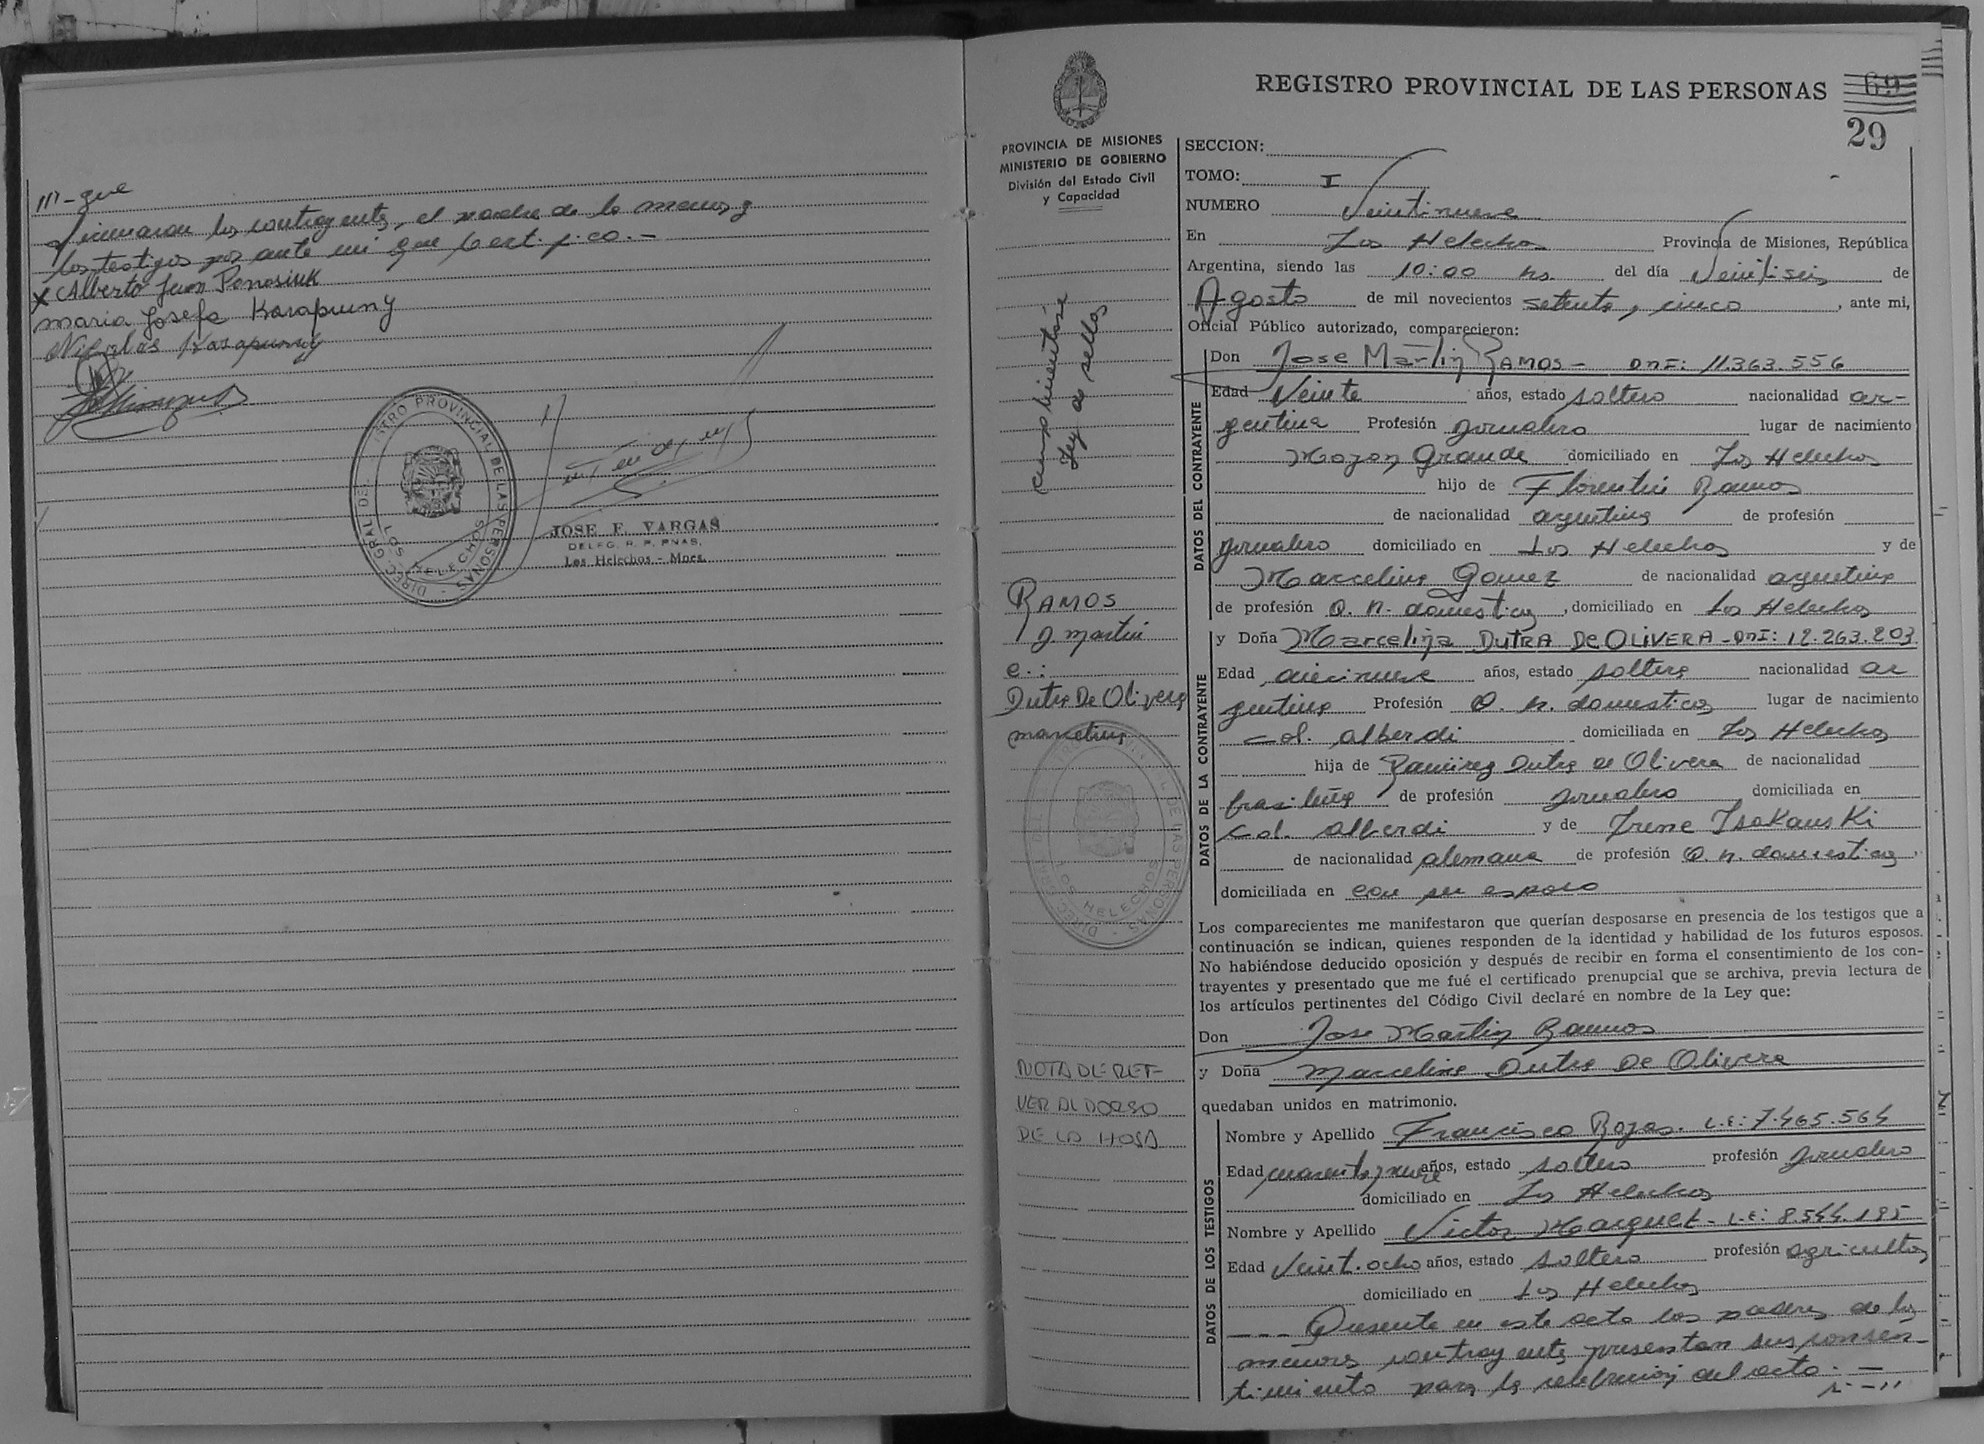 ///-que
firmaron los contrayentes, el padre de la menor y
los testigos por ante mi que certifico.-
x Alberto Juan Panasiuk
maria Josefa Karapuny
Nicolas Karapuny
DIREC. GRAL DEL REGISTRO PROVINCIAL DE LAS PERSONAS
LOS HELECHOS
JOSE F. VARGAS
DELEG. R. P. PNAS.
Los Helechos - Mnes.
REGISTRO PROVINCIAL DE LAS PERSONAS
69
29
PROVINCIA DE MISIONES
MINISTERIO DE GOBIERNO
División del Estado Civil
y Capacidad
cumplimentóse
ley de sellos
RAMOS
J. martin
e.:
Dutra De Olivera
marcelina
LOS HELECHOS
NOTA DE REF-
VER AL DORSO
DE LA HOJA
SECCION:
TOMO: I
NUMERO Veintinueve
En Los Helechos Provincia de Misiones, República
Argentina, siendo las 10:00 hs. del día Veintiseis de
Agosto de mil novecientos setenta y cinco, ante mi,
Oficial Público autorizado, comparecieron:
DATOS DEL CONTRAYENTE
Don Jose Martin RAMOS - DNI: 11.363.556
Edad Veinte años, estado soltero nacionalidad ar-
gentina Profesión jornalero lugar de nacimiento
Mojon Grande domiciliado en Los Helechos
hijo de Florentin Ramos
de nacionalidad argentina de profesión
jornalero domiciliado en Los Helechos y de
Marcelina Gomez de nacionalidad argentina
de profesión Q. h. domesticos, domiciliado en Los Helechos
DATOS DE LA CONTRAYENTE
y Doña Marcelina DUTRA DE OLIVERA - DNI: 12.263.203
Edad diecinueve años, estado soltera nacionalidad ar
gentina Profesión Q. h. domesticos lugar de nacimiento
Col. alberdi domiciliada en Los Helechos
hija de Ramirez Dutra de Olivera de nacionalidad
brasileña de profesión jornalero domiciliada en
Col. alberdi y de Irene Isakauski
de nacionalidad alemana de profesión Q. h. domesticos.
domiciliada en con su esposo
Los comparecientes me manifestaron que querían desposarse en presencia de los testigos que a
continuación se indican, quienes responden de la identidad y habilidad de los futuros esposos.
No habiéndose deducido oposición y después de recibir en forma el consentimiento de los con-
trayentes y presentado que me fué el certificado prenupcial que se archiva, previa lectura de
los artículos pertinentes del Código Civil declaré en nombre de la Ley que:
Don Jose Martin Ramos
y Doña Marcelina Dutra De Olivera
quedaban unidos en matrimonio.
DATOS DE LOS TESTIGOS
Nombre y Apellido Francisco Rojas. L.E: 7.465.564
Edad cuarenta y nueve años, estado soltero profesión jornalero
domiciliado en Los Helechos
Nombre y Apellido Victor Marquez - L.E: 8.544.195
Edad Veintiocho años, estado soltero profesión agricultor
domiciliado en Los Helechos
--- Presente en este acto los padres de los
menores contrayentes presentan sus consen-
timiento para la celebracion del acto.-